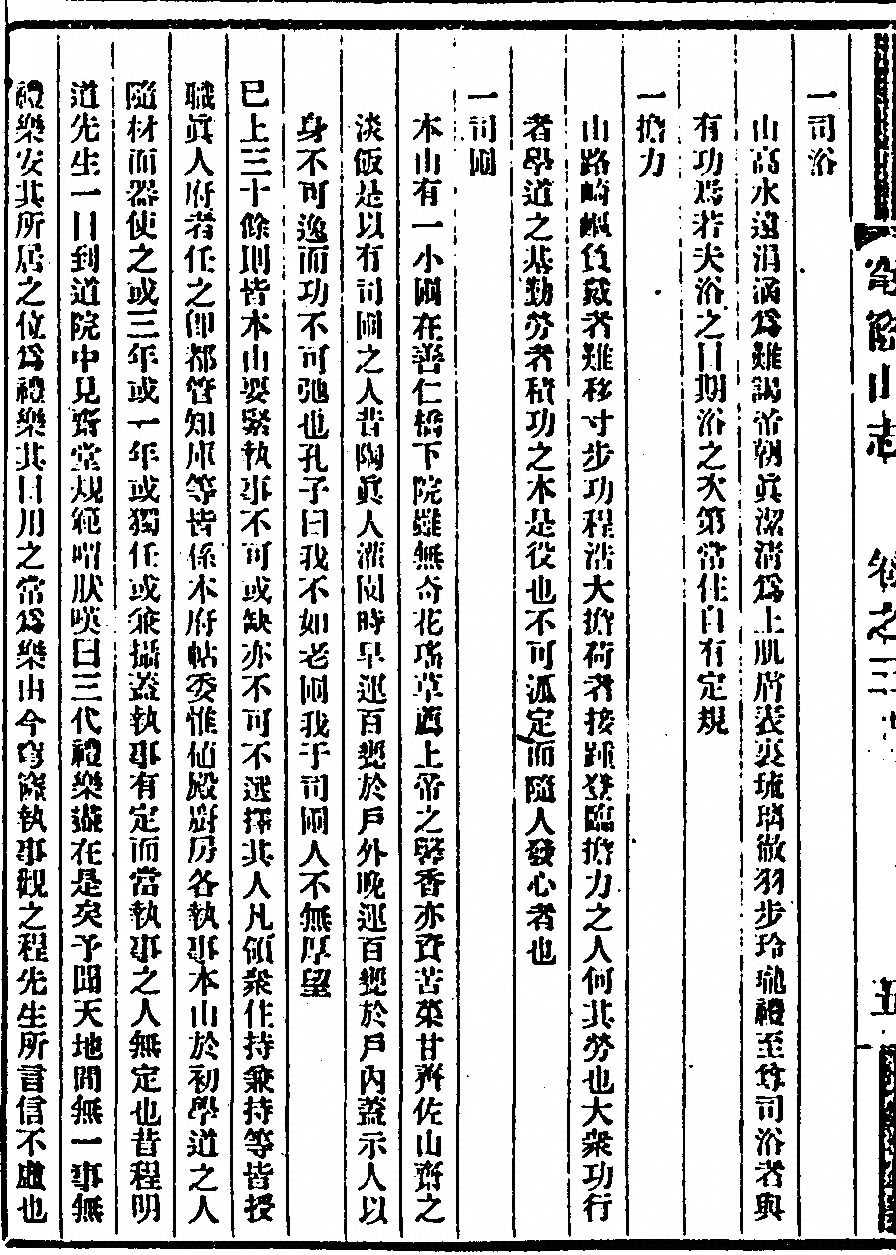 一司浴
山高水遠涓滴爲難謁帝朝眞潔清爲上肌膚表裏琉璃徹羽步玲瓏禮至尊司浴者與
有功焉若夫浴之日期浴之次第常住自有定規
一擔力
山路崎嶇負戴者難移寸步功程浩大擔荷者接踵登臨擔力之人何其勞也大衆功行
者學道之基勤勞者積功之本是役也不可派定而隨人發心者也
一司園
本山有一小園在善仁橋下院雖無奇花瑤草薦上帝之馨香亦資苦菜甘齊佐山齋之
淡飯是以有司園之人昔陶眞人灌園時早運百甕於戶外晚運百甕於戶內蓋示人以
身不可逸而功不可弛也孔子曰我不如老圃我于司園人不無厚望
已上三十餘則皆本山要緊執事不可或缺亦不可不選擇其人凡領衆住持兼持等皆授
職眞人府者任之卽都管知庫等皆係本府帖委惟値殿廚房各執事本山於初學道之人
隨材而器使之或三年或一年或獨任或兼攝蓋執事有定而當執事之人無定也昔程明
道先生一日到道院中見齋堂規範喟狀嘆曰三代禮樂盡在是矣予聞天地間無一事無
禮樂安其所居之位爲禮樂其日用之常爲樂由今穹窿執事觀之程先生所言信不虛也
穹窿山志
卷之三
五